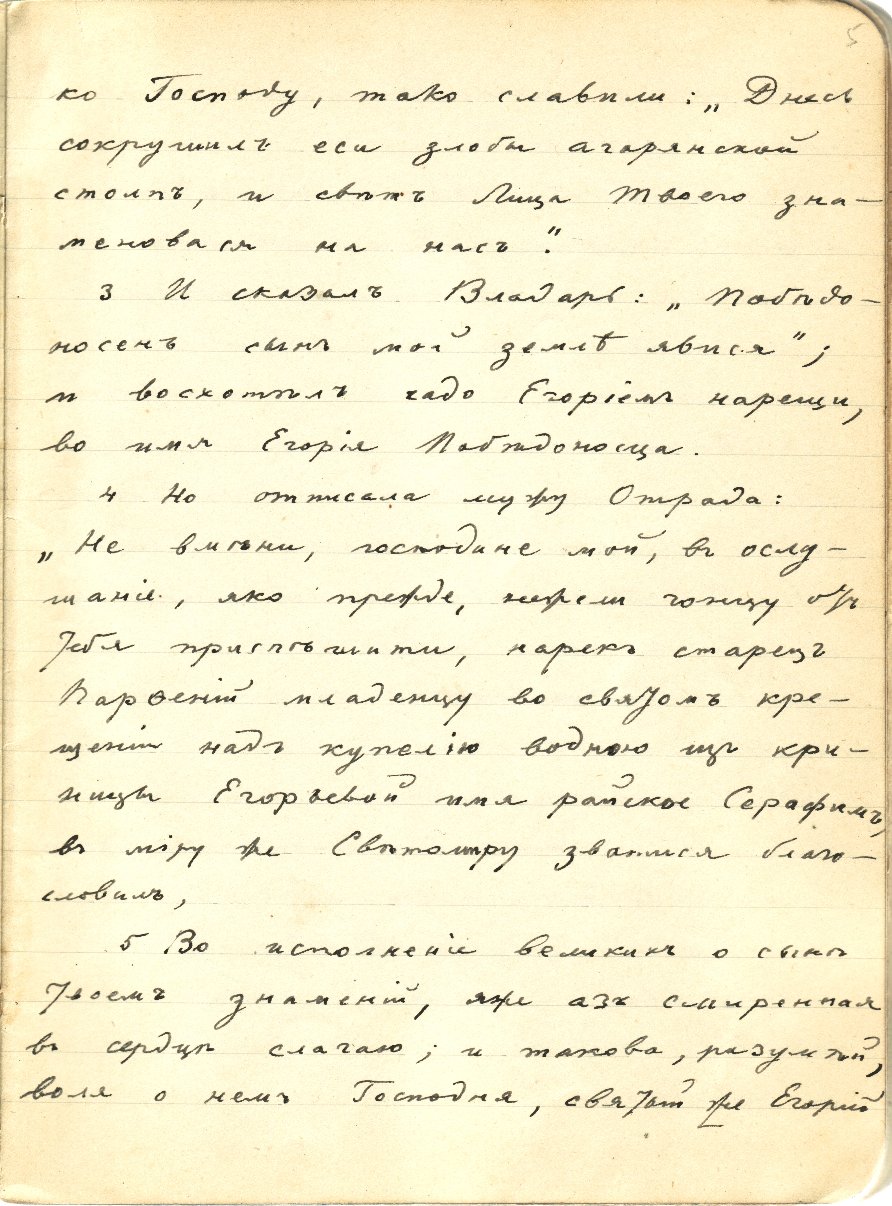 5
ко Господу, тако славили: „Днесь
сокрушилъ еси злобы агарянской
столпъ, и свѣтъ Лица Твоего зна-
меновася на насъ“.
3 И сказалъ Владарь: „Побѣдо-
носенъ сынъ мой землѣ явися“;
и восхотѣлъ чадо Егоріемъ нарещи,
во имя Егорія Побѣдоносца.
4 Но отписала мужу Отрада:
„Не вмѣни, господине мой, въ ослу-
шаніе, яко прежде, нежели гонцу отъ
тебя приспѣшити, нарекъ старецъ
Парѳеній младенцу во святомъ кре-
щеніи надъ купелію водною изъ кри-
ницы Егорьевой имя райское Серафимъ,
въ міру же Свѣтомиру зватися благо-
словилъ,
5 Во исполненіе великихъ о сынѣ
твоемъ знаменій, яже азъ смиренная
въ сердцѣ слагаю; и такова, разумѣй,
воля о немъ Господня, святый же Егорій